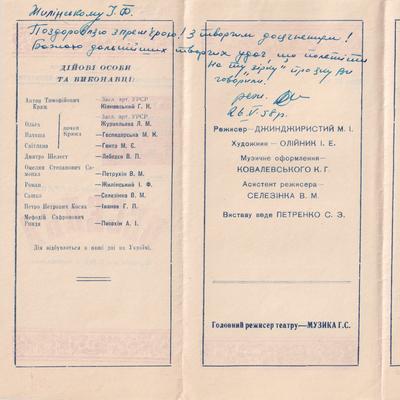 Жилінському І. Ф.
Поздоровляю з прем'єрою! З творчим досягненням!
Бажаю дальніших творчих удач, що полетіти
на ту "зірку" про яку Ви
говорили.
реж.
26.V.58р.
ДІЙОВІ ОСОБИ
ТА ВИКОНАВЦІ:
Антон Тимофійович Краж — Засл. арт. УРСР Кіяновський Г. К.
Ольга — Засл. арт. УРСР Журавльова Л. М.
Наташа — Господарська М. К.
дочки Кражa
Світлана — Гента М. Є.
Дмитро Шелест — Лебедєв В. П.
Овелій Степанович Самопал — Петрухін В. М.
Роман — Жилінський І. Ф.
Сашко — Селезінка В. М.
Петро Петрович Косяк — Іванов Г. П.
Мефодій Сафронович Риндя — Пивохін А. І.
Дія відбувається в наші дні на Україні.
Режисер — ДЖИНДЖИРИСТИЙ М. І.
Художник — ОЛІЙНИК І. Е.
Музичне оформлення —
КОВАЛЕВСЬКОГО К. Г.
Асистент режисера —
СЕЛЕЗІНКА В. М.
Виставу веде ПЕТРЕНКО С. З.
Головний режисер театру — МУЗИКА Г.С.